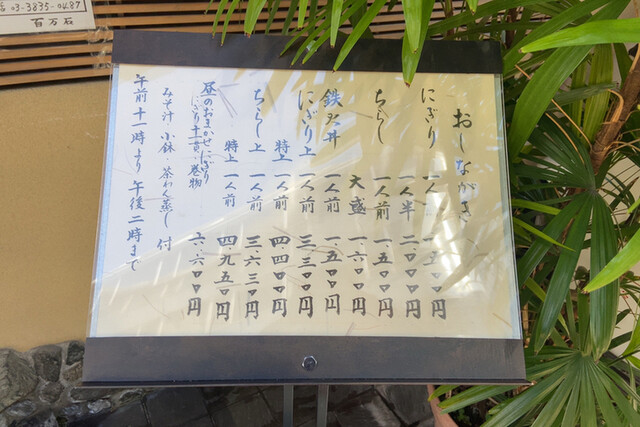 03-3835-0487
百万石
おしながき
にぎり 一人 一.五〇〇円
一人半 二.〇〇〇円
ちらし 一人前 一.五〇〇円
大盛 一.六〇〇円
鉄火丼 一人前 一.五〇〇円
にぎり上 一人前 三.三〇〇円
特上 一人前 四.四〇〇円
ちらし上 一人前 三.六三〇円
特上 一人前 四.九五〇円
昼のおまかせにぎり 六.六〇〇円
にぎり十一貫・巻物
みそ汁 小鉢 茶わん蒸し 付
午前十一時より 午後二時まで